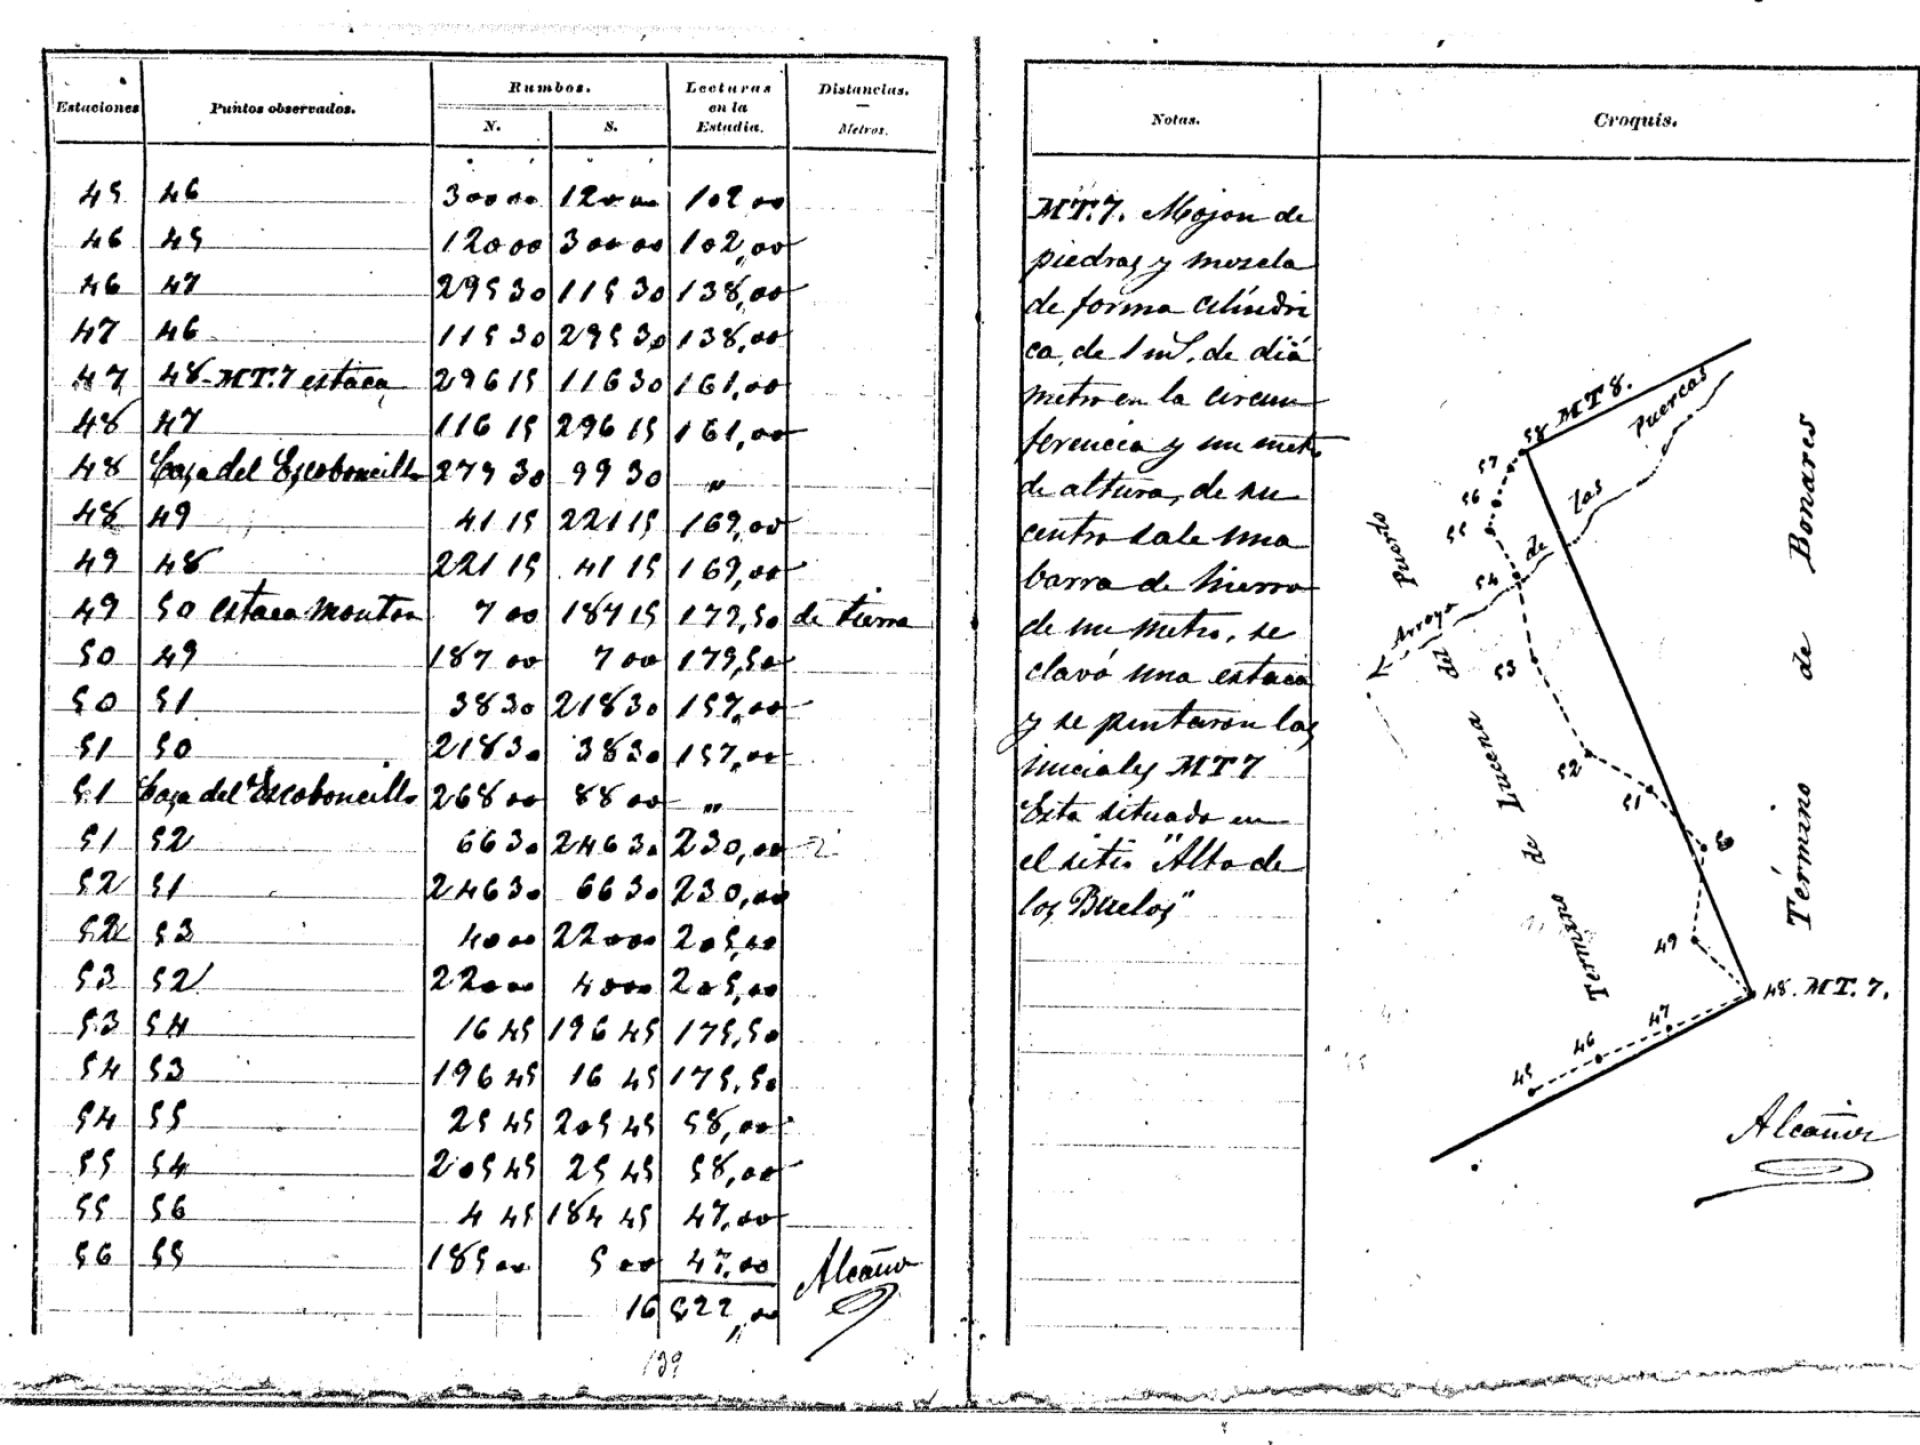 Estaciones Puntos observados. Rumbos. Lecturas en la Estadia. Distancias. — Metros.
N. S.
45 46 300 00 120 00 102 00
46 45 120 00 300 00 102,00
46 47 295 30 115 30 138,00
47 46 115 30 295 30 138,00
47 48-MT.7 estaca 296 15 116 30 161,00
48 47 116 15 296 15 161,00
48 Casa del Escoboncillo 279 30 99 30 "
48 49 41 15 221 15 169,00
49 48 221 15 41 15 169,00
49 50 estaca monton 7 00 187 15 179,50 de tierra
50 49 187 00 7 00 179,50
50 51 38 30 218 30 157,00
51 50 218 30 38 30 157,00
51 Casa del Escoboncillo 268 00 88 00 "
51 52 66 30 246 30 230,00
52 51 246 30 66 30 230,00
52 53 40 00 220 00 205,00
53 52 220 00 40 00 205,00
53 54 16 45 196 45 175,50
54 53 196 45 16 45 175,50
54 55 25 45 205 45 58,00
55 54 205 45 25 45 58,00
55 56 4 45 184 45 47,00
56 55 185 00 5 00 47,00
16 522,00
Alcañiz
139
Notas. Croquis.
MT.7. Mojon de
piedras y mezcla
de forma cilíndri
ca, de 1 mt. de diá
metro en la circun
ferencia y un metro
de altura, de su
centro sale una
barra de hierro
de un metro, se
clavó una estaca
y se pintaron las
iniciales MT 7
Esta situado en
el sitio "Alto de
los Buelos"
58 MT 8.
57
56
55
54
53
52
51
50
49
48. MT. 7.
47
46
45
Arroyo de las Puercas
Término de Lucena del Puerto
Término de Bonares
Alcañiz